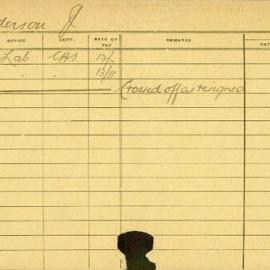 derson J
OFFICE DEPT. RATE OF PAY REMARKS RAT
Lab CAS 13/-
" " 13/11
Crossed off as resigned